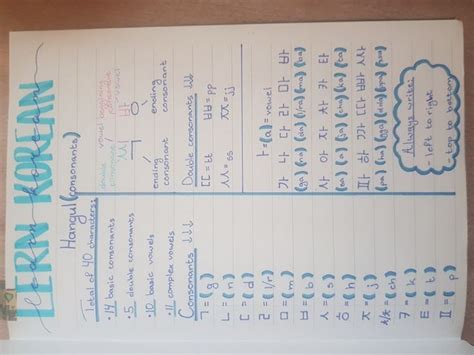 LERN KOREAN
learn korean
Hangul (consonants)
Total of 40 characters:
• 14 basic consonants
• 5 double consonants
• 10 basic vowels
• 11 complex vowels
Consonants ↓↓↓
ㄱ=(g)
ㄴ=(n)
ㄷ=(d)
ㄹ=(l/r)
ㅁ=(m)
ㅅ=(s)
ㅎ=(h)
ㅈ=(j)
=(ch)
ㅋ=(k)
ㅌ=(t)
ㅍ=(p)
double
vowel
ending consonant
ending consonant
Double consonants ↓↓↓
ㄸ=tt ㅃ=pp
ㅆ=ss ㅉ=jj
ㅏ=(a)=vowel
가 나 다 라 마 바
(ga) (na) (da) (l/ra) (ma) (ba)
사 아 자 차 카 타
(sa) (a) (ja) (cha) (ka) (ta)
파 하 까 따
(pa) (ha)
Always write:
- left to right
- top to bottom